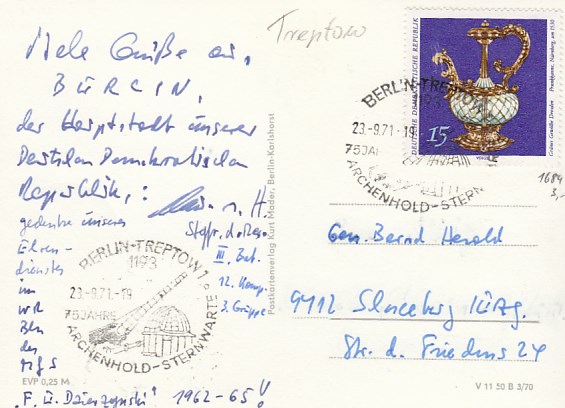 Treptow
Viele Grüße aus
BERLIN,
der Hauptstadt unserer
Deutschen Demokratischen
Republik,:
gedenke unseres
Ehren-
dienstes
im
WR
Bln
des
MfS
"F. E. Dzierzynski" 1962-65!
III. Bat.
12. Komp.
3. Gruppe
BERLIN-TREPTOW 1
1193
23.-9.71.-19
75 JAHRE
ARCHENHOLD-STERNWARTE
EVP 0,25 M
Postkartenverlag Kurt Mader, Berlin-Karlshorst
DEUTSCHE DEMOKRATISCHE REPUBLIK
15
Grünes Gewölbe Dresden
Prunkkanne, Nürnberg, um 1530
BERLIN-TREPTOW
1193
23.-9.71.-19
75 JAH
ARCHENHOLD-STERNW
1684
3,-
Gen. Bernd Herold
9412 Schneeberg
Str. d. Friedens 24
V 11 50 B 3/70